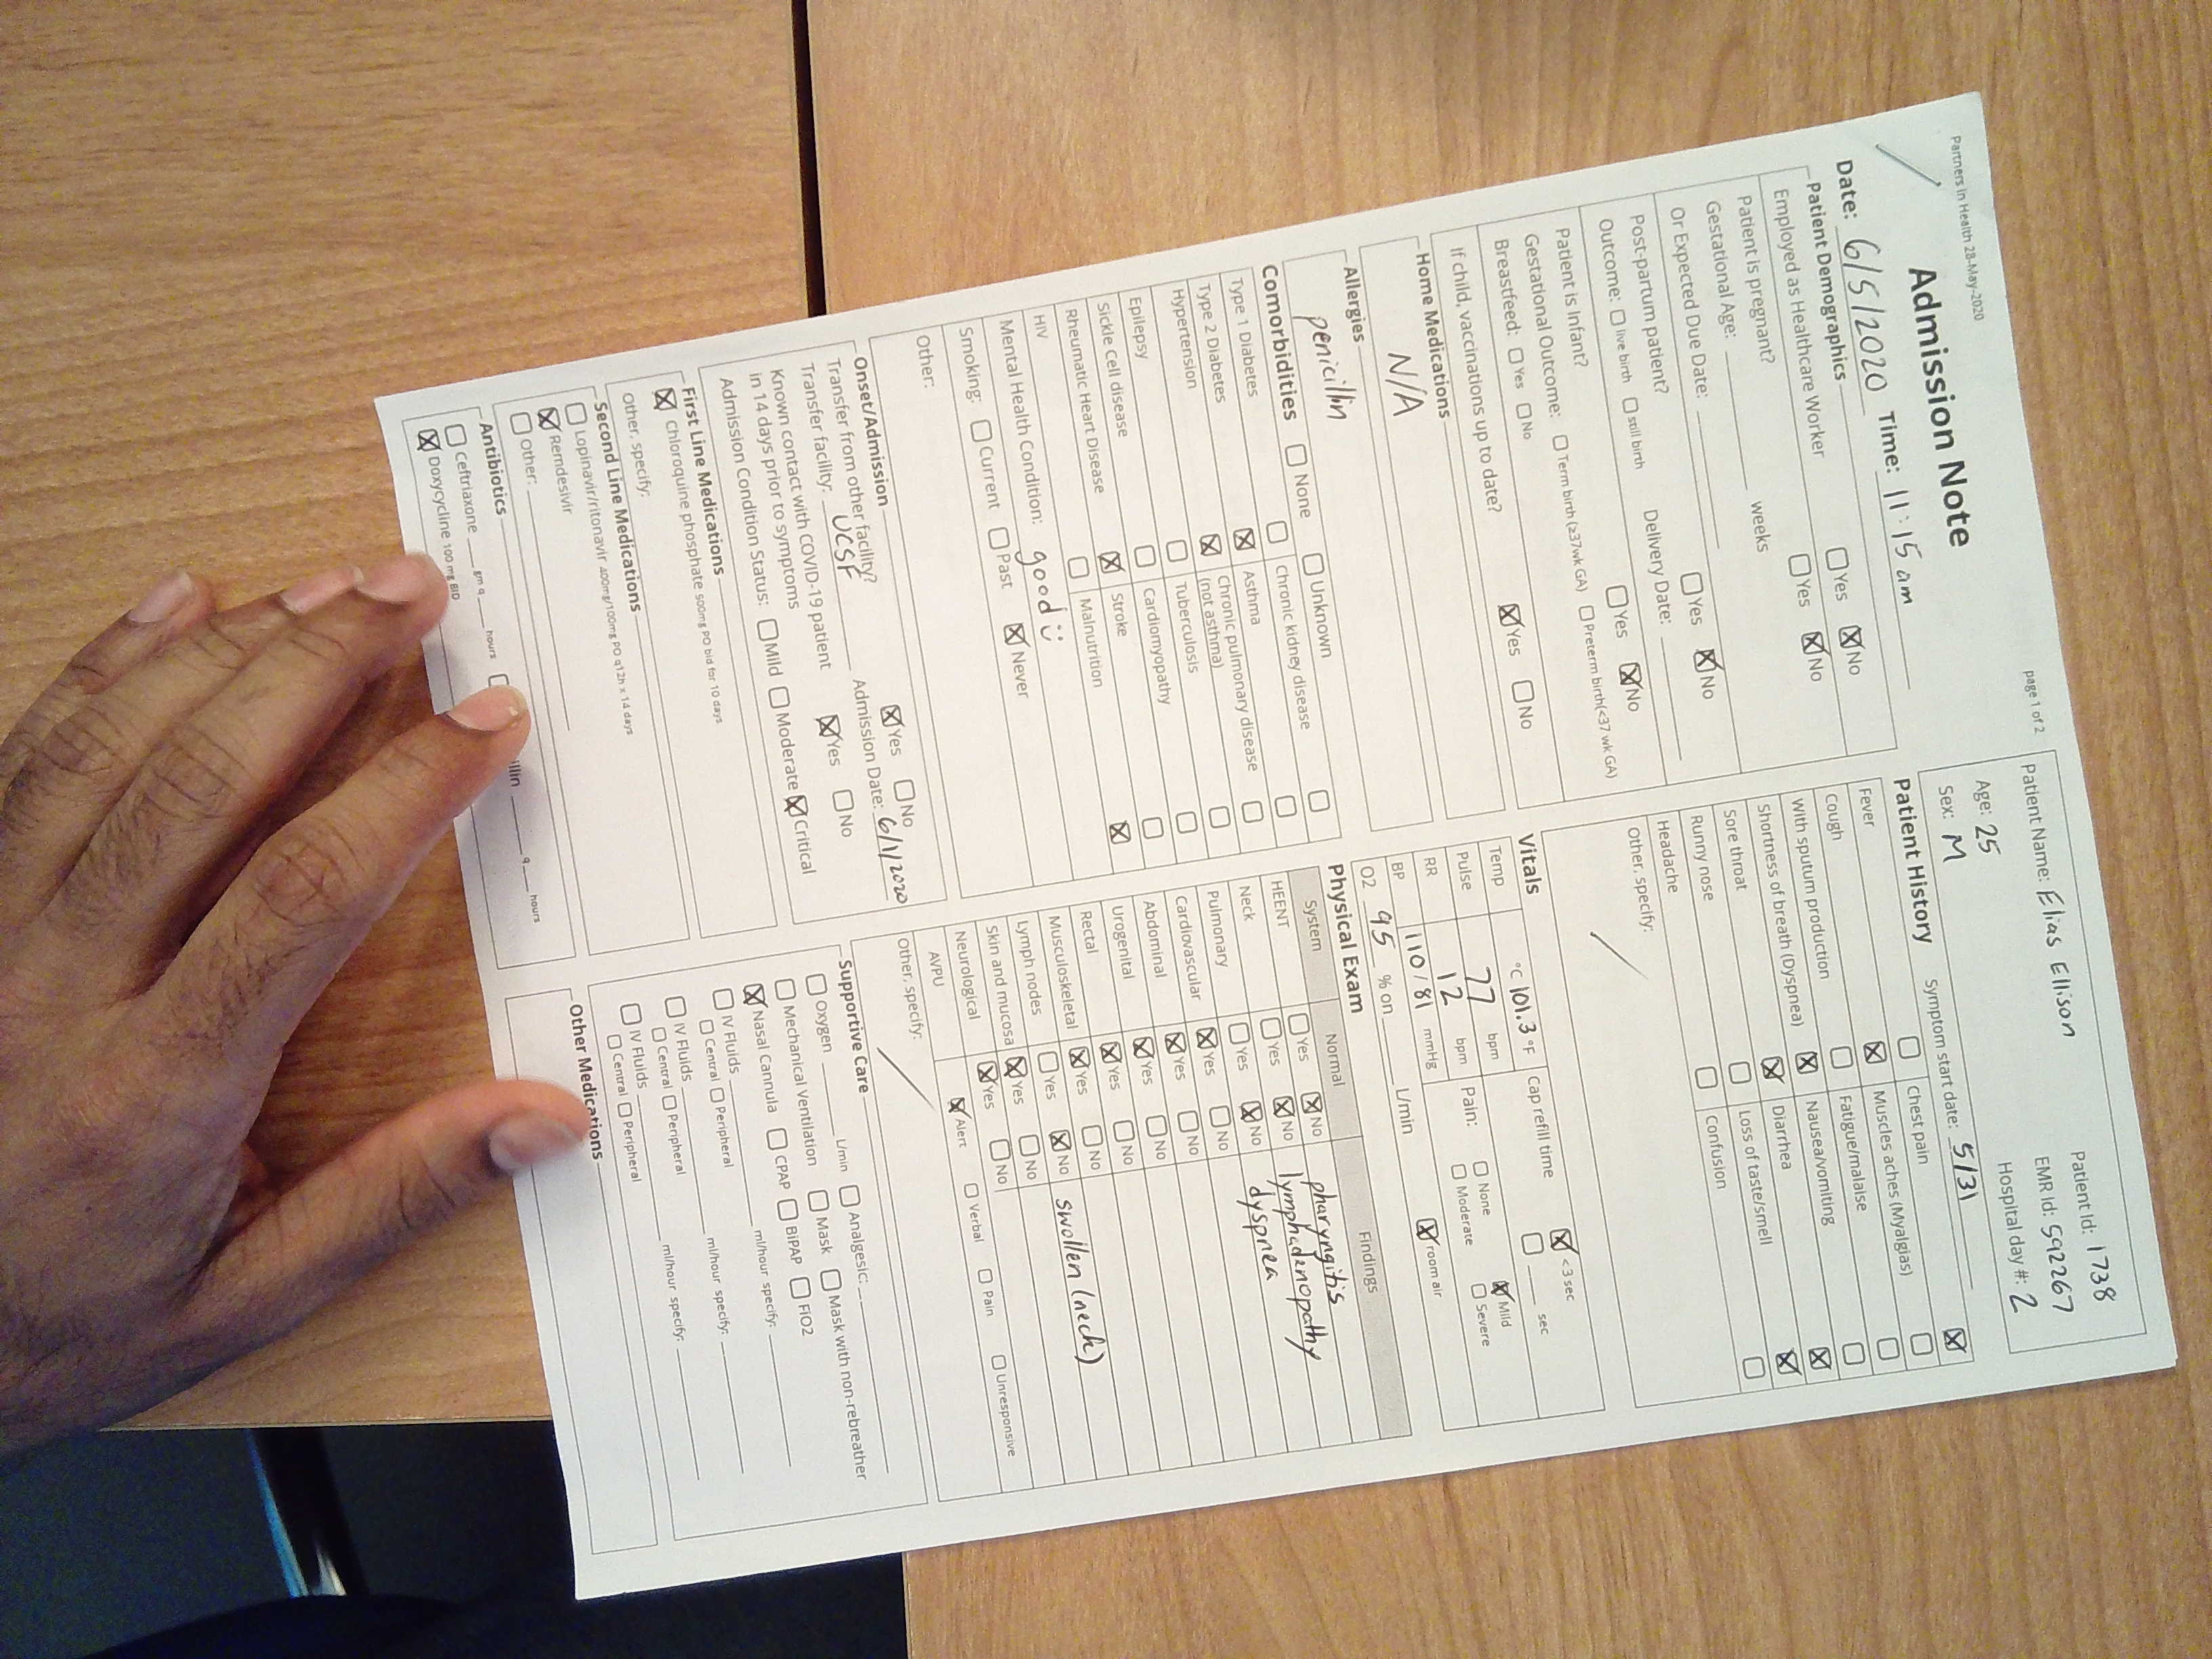 Partners In Health 28-May-2020
page 1 of 2
Admission Note
Date: 6/5/2020 Time: 11:15 am
Patient Name: Elias Ellison
Patient Id: 1738
EMR Id: 592267
Age: 25
Hospital day #: 2
Sex: M
Patient Demographics
Employed as Healthcare Worker Yes No
Patient is pregnant? Yes No
Gestational Age: weeks
Or Expected Due Date: Yes No
Post-partum patient? Yes No
Outcome: live birth still birth Delivery Date:
Patient is Infant?
Gestational Outcome: Term birth (≥37wk GA) Preterm birth(<37 wk GA)
Breastfeed: Yes No
If child, vaccinations up to date? Yes No
Home Medications
N/A
Allergies
penicillin
Comorbidities None Unknown
Type 1 Diabetes Chronic kidney disease
Type 2 Diabetes Asthma
Hypertension Chronic pulmonary disease (not asthma)
Epilepsy Tuberculosis
Sickle Cell disease Cardiomyopathy
Rheumatic Heart Disease Stroke
HIV Malnutrition
Mental Health Condition: good :)
Smoking: Current Past Never
Other:
Onset/Admission
Transfer from other facility? Yes No
Transfer facility: UCSF Admission Date: 6/1/2020
Known contact with COVID-19 patient
in 14 days prior to symptoms Yes No
Admission Condition Status: Mild Moderate Critical
First Line Medications
Chloroquine phosphate 500mg PO bid for 10 days
Other, specify:
Second Line Medications
Lopinavir/ritonavir 400mg/100mg PO q12h x 14 days
Remdesivir
Other:
Antibiotics
Ceftriaxone gm q hours
q hours
Doxycycline 100 mg BID
Patient History Symptom start date: 5/31
Fever Chest pain
Cough Muscles aches (Myalgias)
With sputum production Fatigue/malaise
Shortness of breath (Dyspnea) Nausea/vomiting
Sore throat Diarrhea
Runny nose Loss of taste/smell
Headache Confusion
Other, specify:
Vitals
Temp °C 101.3 °F Cap refill time <3 sec
sec
Pulse 77 bpm
RR 12 bpm Pain: None Mild
Moderate Severe
BP 110/81 mmHg
O2 95 % on L/min room air
Physical Exam
System Normal Findings
HEENT Yes No pharyngitis
Neck Yes No lymphadenopathy
Pulmonary Yes No dyspnea
Cardiovascular Yes No
Abdominal Yes No
Urogenital Yes No
Rectal Yes No
Musculoskeletal Yes No
Lymph nodes Yes No swollen (neck)
Skin and mucosa Yes No
Neurological Yes No
AVPU Alert Verbal Pain Unresponsive
Other, specify:
Supportive Care
Oxygen L/min Analgesic:
Mechanical Ventilation Mask Mask with non-rebreather
Nasal Cannula CPAP BiPAP FiO2
IV Fluids ml/hour specify:
Central Peripheral
IV Fluids ml/hour specify:
Central Peripheral
IV Fluids ml/hour specify:
Central Peripheral
Other Medications